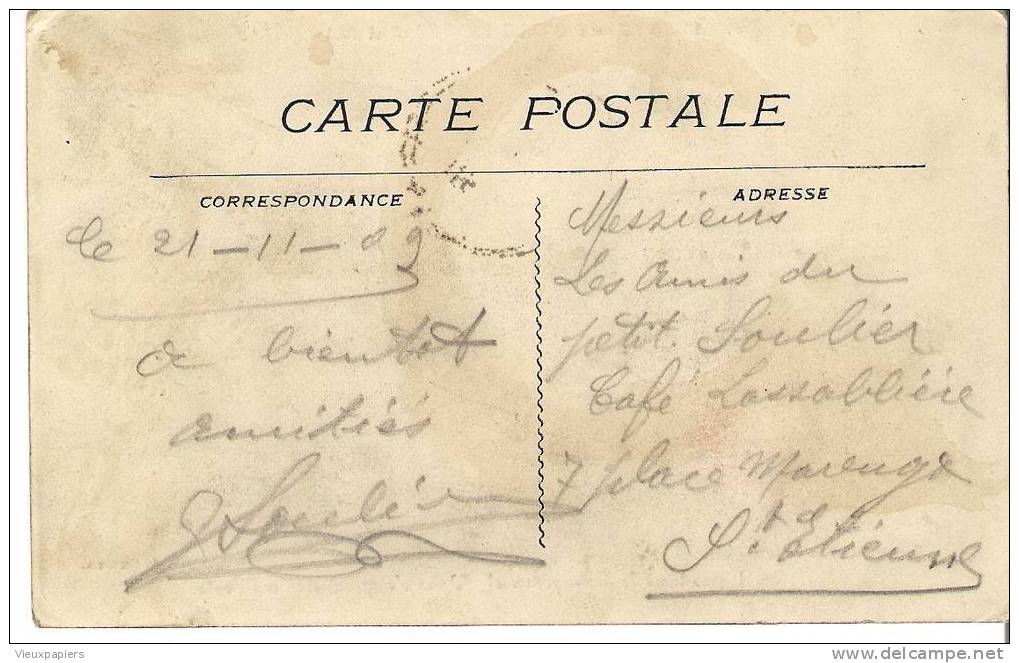 CARTE POSTALE
CORRESPONDANCE
Le 21-11-09
a bientot
amitiés
Soulier
ADRESSE
Messieurs
Les amis du
petit Soulier
Café Lassablière
7 place Marengo
St Etienne
Vieuxpapiers
www.delcampe.net